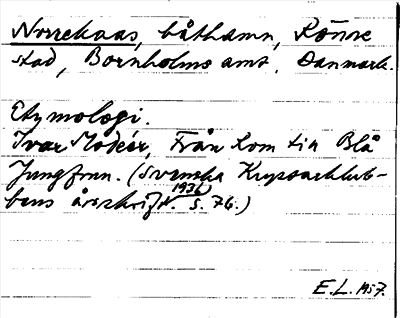 Norrekaas, båthamn, Rönne
stad, Bornholms amt, Danmark.
Etymologi.
Ivar Modéer, Från Rom till Blå
Jungfrun. (Svenska Kryssarklub-
bens årsskrift. 1936 s. 76.)
E.L. 1957.